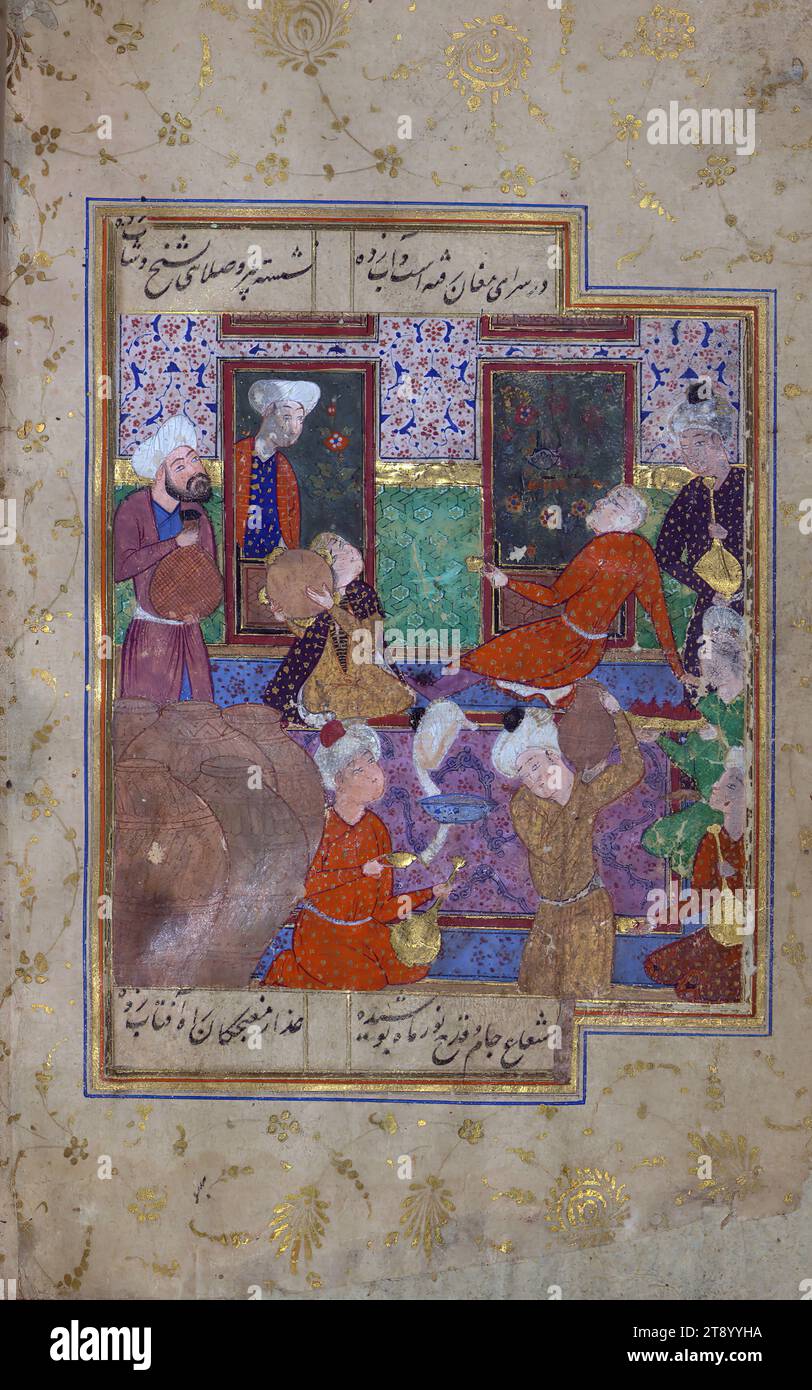 در سرای مغان رفته است و آب زده
نشسته پیر و صلائی بشیخ و شاب زده
شعاع جام و قدح نور ماه پوشیده
عذار مغبچگان راه آفتاب زده
alamy
Image ID: 2T8YYHA
www.alamy.com